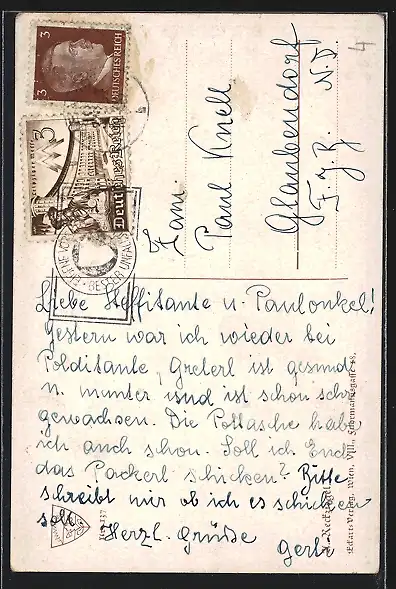 Liebe Steffitante u. Paulonkel!
Gestern war ich wieder bei
Polditante, Greterl ist gesund
u. munter und ist schon sehr
gewachsen. Die Pottasche hab
ich auch schon. Soll ich Euch
das Packerl schicken? Bitte
schreibt mir ob ich es schicken
soll. Herzl. Grüße
Gerti
Fam.
Paul Kinell
Glaubendorf
N. D.
3 3
DEUTSCHES REICH
3
Leipziger Messe
Deutsches Reich
BESSER
Eckart-Verlag, Wien, VIII., Fuhrmannsgasse 18.